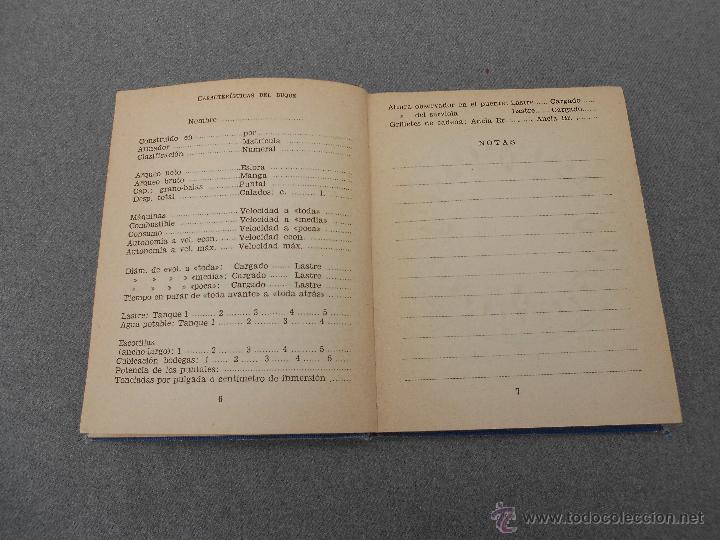 CARACTERÍSTICAS DEL BUQUE
Nombre
Construido en ........ por
Armador ........ Matrícula
Clasificación ........ Numeral
Arqueo neto ........ Eslora
Arqueo bruto ........ Manga
Cap.: grano-balas ........ Puntal
Desp. total ........ Calados: c. ........ l.
Máquinas ........ Velocidad a «toda»
Combustible ........ Velocidad a «media»
Consumo ........ Velocidad a «poca»
Autonomía a vel. econ. ........ Velocidad econ.
Autonomía a vel. máx. ........ Velocidad máx.
Diám. de evol. a «toda»: Cargado ........ Lastre
» » » » «media»: Cargado ........ Lastre
» » » » «poca»: Cargado ........ Lastre
Tiempo en parar de «toda avante» a «toda atrás»
Lastre: Tanque 1 ........ 2 ........ 3 ........ 4 ........ 5
Agua potable: Tanque 1 ........ 2 ........ 3 ........ 4
Escotillas
(ancho-largo): 1 ........ 2 ........ 3 ........ 4 ........ 5
Cubicación bodegas: 1 ........ 2 ........ 3 ........ 4 ........ 5
Potencia de los puntales:
Toneladas por pulgada o centímetro de inmersión
6
Altura observador en el puente: Lastre ...... Cargado
» del serviola Lastre ...... Cargado
Grilletes de cadena: Ancla Er. ........ Ancla Br.
NOTAS
7
www.todocoleccion.net